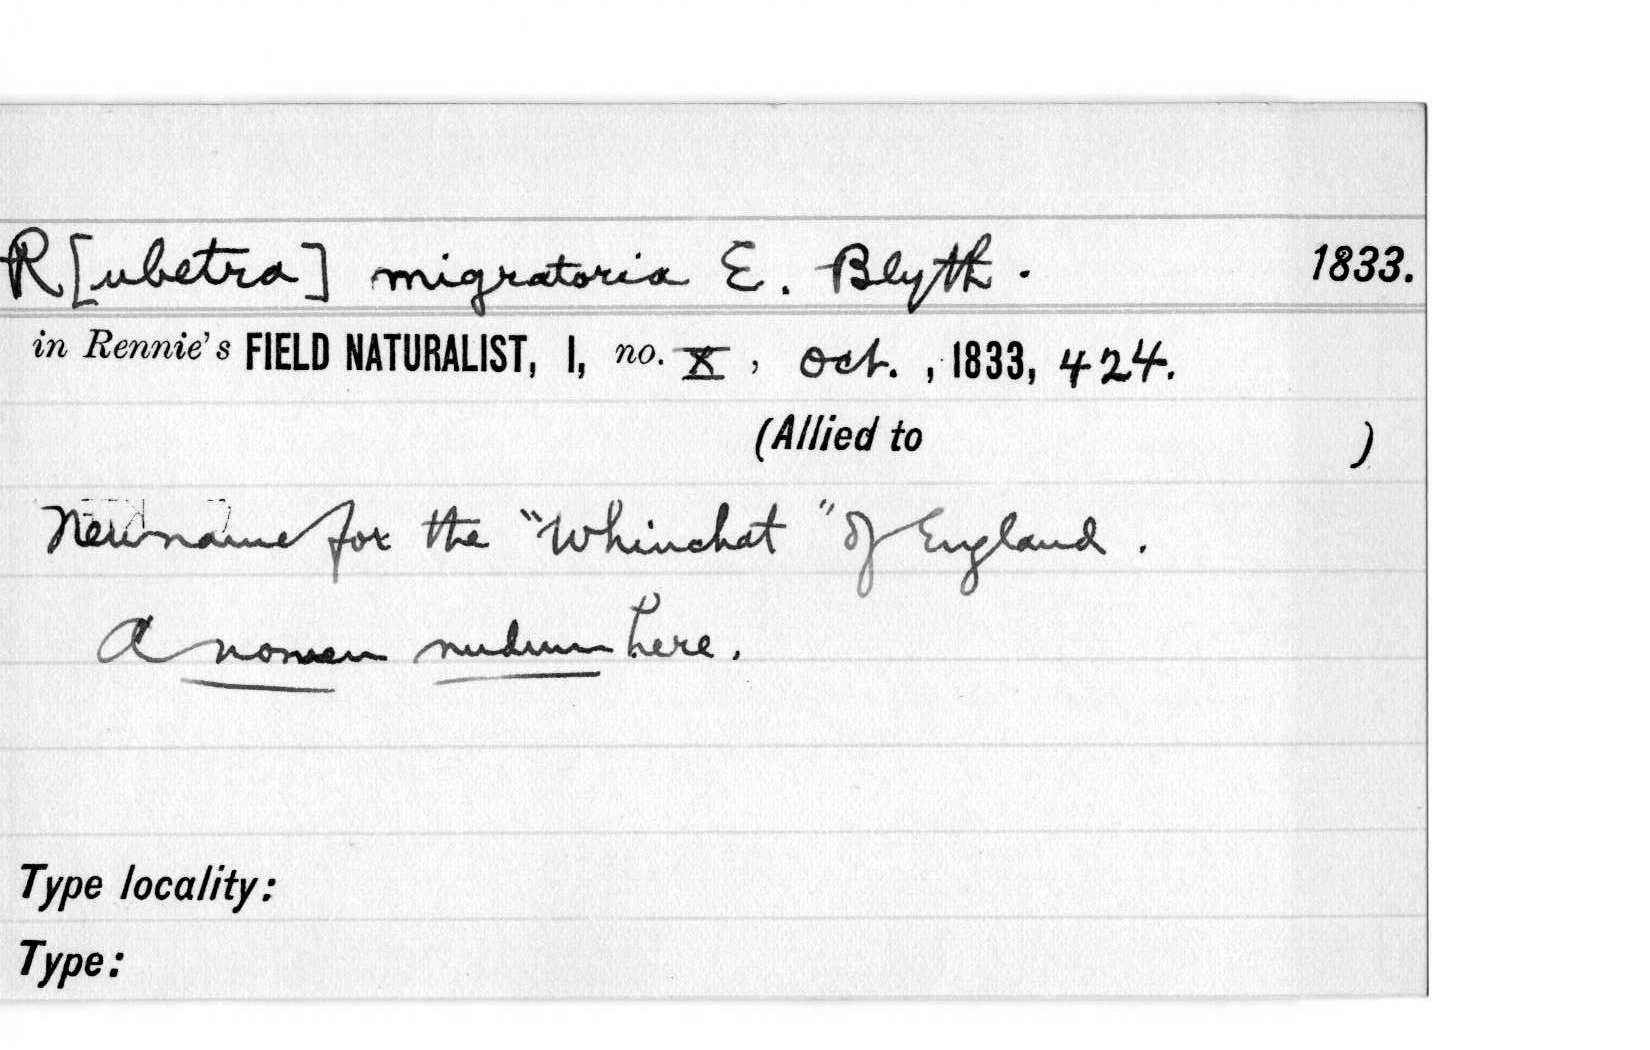 R[ubetra] migratoria E. Blyth. 1833.
in Rennie's FIELD NATURALIST, I, no. X, Oct., 1833, 424.
(Allied to )
New name for the "Whinchat" of England.
A nomen nudum here.
Type locality:
Type: